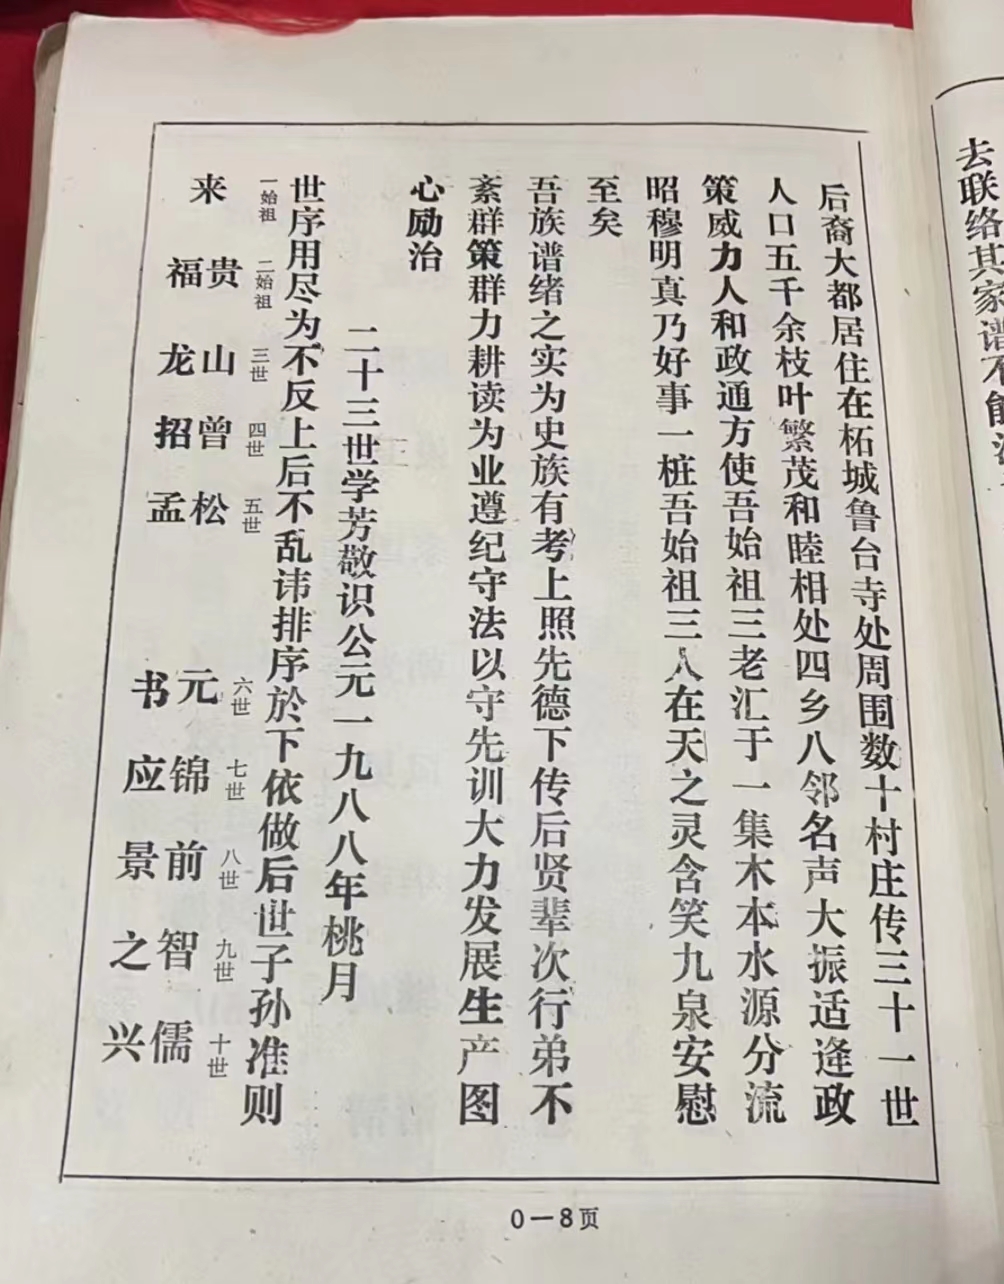 去联络其家谱不能
后裔大都居住在柘城鲁台寺处周围数十村庄传三十一世
人口五千余枝叶繁茂和睦相处四乡八邻名声大振适逢政
策威力人和政通方使吾始祖三老汇于一集木本水源分流
昭穆明真乃好事一桩吾始祖三人在天之灵含笑九泉安慰
至矣
吾族谱绪之实为史族有考上照先德下传后贤辈次行弟不
紊群策群力耕读为业遵纪守法以守先训大力发展生产图
心励治
二十三世学芳敬识公元一九八八年桃月
世序用尽为不反上后不乱讳排序於下依做后世子孙准则
一始祖 二始祖 三世 四世 五世 六世 七世 八世 九世 十世
贵 山 曾 松 元 锦 前 智 儒
来 福 龙 招 孟 书 应 景 之 兴
0—8页